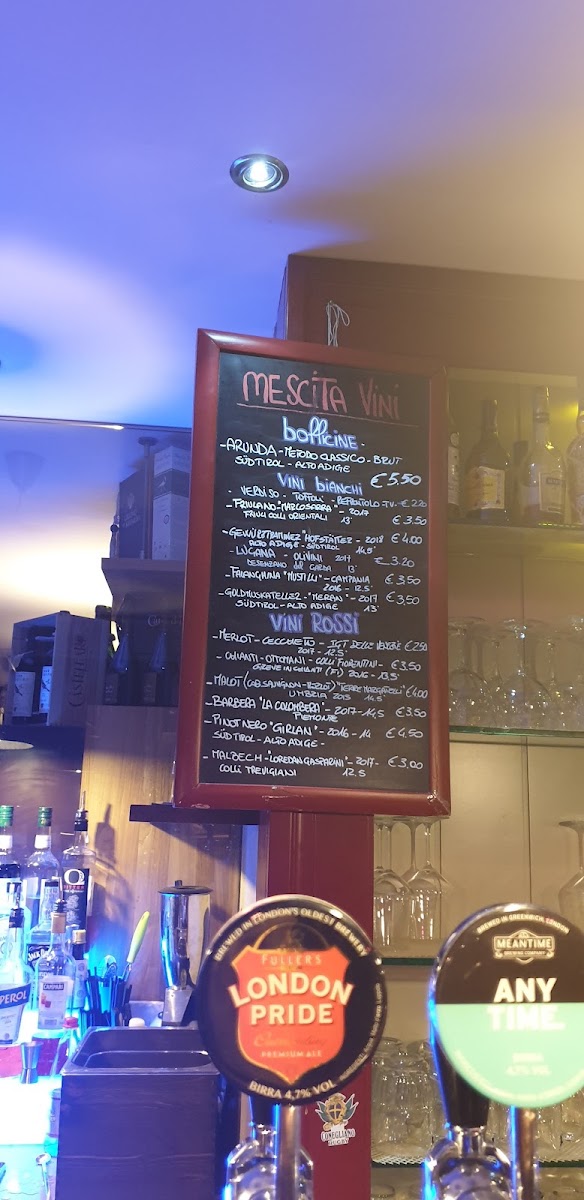 MESCITA VINI
bollicine -
- ARUNDA - METODO CLASSICO - BRUT
SÜDTIROL - ALTO ADIGE € 5,50
VINI bIANCHI
- VERDISO - TOFFOLI - REFRONTOLO TV. - € 2.20
- FRIULANO "MARCO SARRA" - 2017
FRIULI COLLI ORIENTALI 13° € 3.50
- GEWÜRZTRAMINEZ "HOFSTÄTTER" - 2018 € 4.00
ALTO ADIGE - SÜDTIROL 14.5°
- LUGANA - OLIVINI 2017 € 3.20
DESENZANO del GARDA 13°
- FALANGHINA "MUSTILLI" - CAMPANIA € 3.50
2016 - 12.5°
- GOLDMUSKATELLER - "MERAN" - 2017 € 3,50
SÜDTIROL - ALTO ADIGE 13°
VINI ROSSI
- MERLOT - CECCHETTO - IGT DELLE VENEZIE € 2.50
2017 - 12.5°
- CHIANTI - OTTOMANI - COLLI FIORENTINI - € 3.50
GREVE IN CHIANTI (FI) 2016 - 13.5°
- MALOT (CAB. SAUVIGNON - MERLOT) "TERRE MARGARITELLI" € 4.00
UMBRIA 2015 14.5°
- BARBERA "LA COLOMBERA" - 2017 - 14,5 € 3.50
PIEMONTE
- PINOT NERO "GIRLAN" - 2016 - 14 € 4,50
SÜDTIROL - ALTO ADIGE -
- MALBECH - "LOREDAN GASPARINI" - 2017 - € 3,00
COLLI TREVIGIANI 12.5
BREWED IN LONDON'S OLDEST BREWERY
FULLER'S
LONDON
PRIDE
PREMIUM ALE
BIRRA 4,7% VOL
BREWED IN GREENWICH, LONDON
MEANTIME
BREWING COMPANY
ANY
TIME.
BIRRA
4,7% VOL
CONEGLIANO
RUGBY
CAMPARI